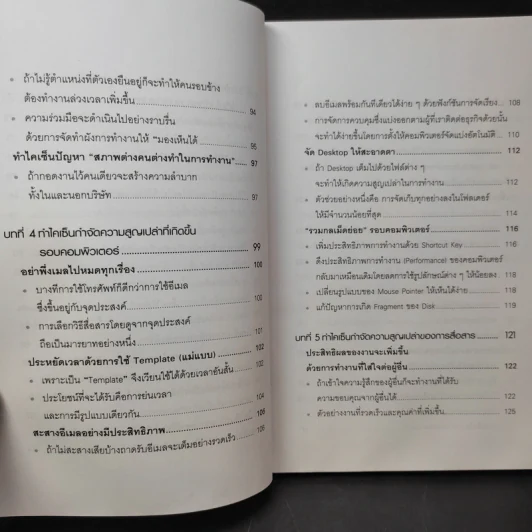 • ถ้าไม่รู้ตำแหน่งที่ตัวเองยืนอยู่ก็จะทำให้คนรอบข้าง
ต้องทำงานล่วงเวลาเพิ่มขึ้น 94
• ความร่วมมือจะดำเนินไปอย่างราบรื่น
ด้วยการจัดทำผังการทำงานให้ "มองเห็นได้ 95
ทำไคเซ็นปัญหา "สภาพต่างคนต่างทำในการทำงาน" 97
• ถ้ากอดงานไว้คนเดียวจะสร้างความลำบาก
ทั้งในและนอกบริษัท 97
บทที่ 4 ทำไคเซ็นกำจัดความสูญเปล่าที่เกิดขึ้น
รอบคอมพิวเตอร์ 99
อย่าพึ่งเมลไปหมดทุกเรื่อง 100
• บางทีการใช้โทรศัพท์ก็ดีกว่าการใช้อีเมล
ซึ่งขึ้นอยู่กับจุดประสงค์ 100
• การเลือกวิธีสื่อสารโดยดูจากจุดประสงค์
ถือเป็นมารยาทอย่างหนึ่ง 101
ประหยัดเวลาด้วยการใช้ Template (แม่แบบ) 102
• เพราะเป็น "Template" จึงเรียนใช้ได้ด้วยเวลาอันสั้น 102
• ประโยชน์ที่จะได้รับคือการย่นเวลา
และการมีรูปแบบเดียวกัน 104
สะสางอีเมลอย่างมีประสิทธิภาพ 106
• ถ้าไม่สะสางเสียบ้างถาดรับอีเมลจะเต็มอย่างรวดเร็ว 106
• ลบอีเมลพร้อมกันทีเดียวได้ง่าย ๆ ด้วยฟังก์ชันการจัดเรียง 108
• การจัดการควบคุมซึ่งแบ่งออกตามผู้ที่เราติดต่อธุรกิจด้วยนั้น
จะทำได้ง่ายขึ้นโดยการตั้งให้คอมพิวเตอร์จัดแบ่งอัตโนมัติ 110
จัด Desktop ให้สะอาดตา 112
• ถ้า Desktop เต็มไปด้วยไฟล์ต่าง ๆ
จะทำให้เกิดความสูญเปล่าในการทำงาน 112
• ตัวช่วยอย่างหนึ่งคือ การจัดเก็บทุกอย่างลงในโฟลเดอร์
ให้มีจำนวนน้อยที่สุด 114
"รวมกลเม็ดย่อย" รอบคอมพิวเตอร์ 116
• เพิ่มประสิทธิภาพการทำงานด้วย Shortcut Key 116
• ดึงประสิทธิภาพการทำงาน (Performance) ของคอมพิวเตอร์
กลับมาเหมือนเดิมโดยลดการใช้รูปลักษณ์ต่าง ๆ ให้น้อยลง 116
• เปลี่ยนรูปแบบของ Mouse Pointer ให้เห็นได้ง่าย 118
• แก้ปัญหาการเกิด Fragment ของ Disk 119
บทที่ 5 ทำไคเซ็นกำจัดความสูญเปล่าของการสื่อสาร 121
ประสิทธิผลของงานจะเพิ่มขึ้น
ด้วยการทำงานที่ใส่ใจต่อผู้อื่น 122
• ถ้าเข้าใจความรู้สึกของผู้อื่นก็จะทำงานที่ได้รับ
ความชอบคุณจากผู้อื่นได้ 122
• ตัวอย่างงานที่รวดเร็วและคุณค่าที่เพิ่มขึ้น 125